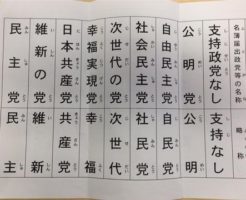 名簿届出政党等の名称
略称
支持政党なし
支持なし
公明党
公明
自由民主党
自民党
社会民主党
社民党
次世代の党
次世代
幸福実現党
幸福
日本共産党
共産党
維新の党
維新
民主党
民主